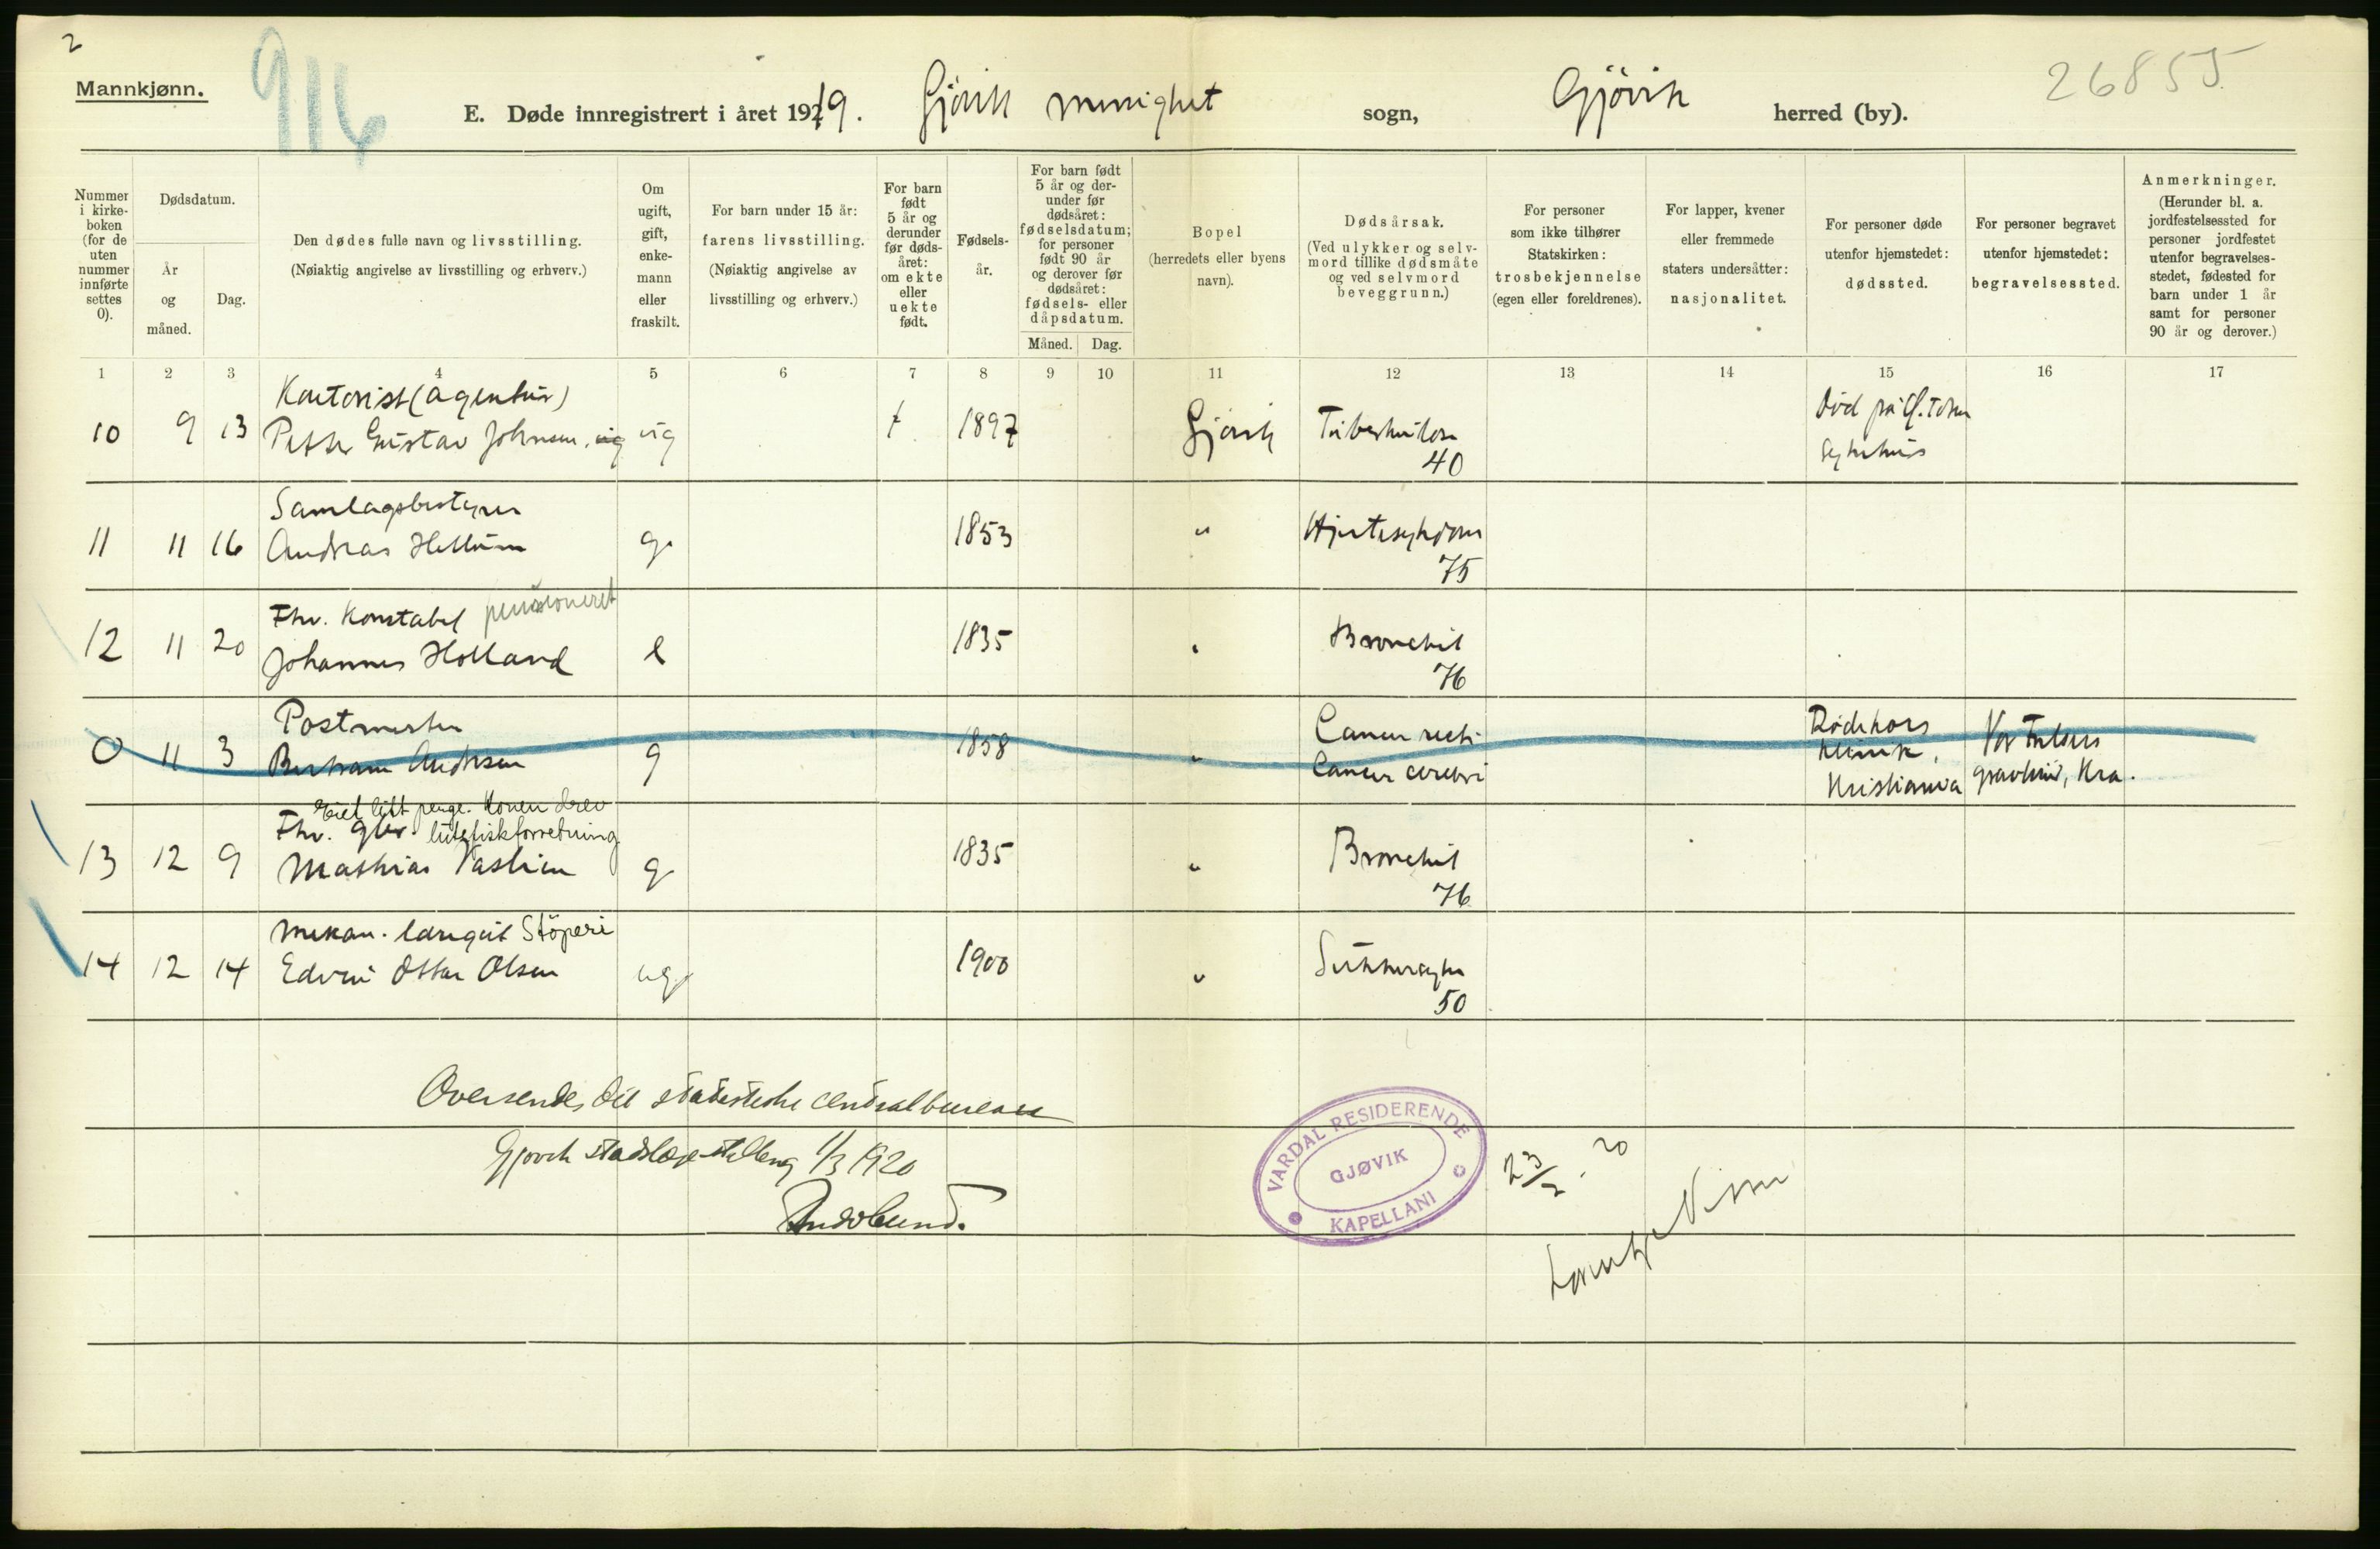 2
Mannkjønn.
916
E. Døde innregistrert i året 1919.
Gjøvik menighet
sogn,
Gjøvik
herred (by).
26855
Nummer i kirke-boken (for de uten nummer innførte settes 0).
Dødsdatum.
År og måned.
Dag.
Den dødes fulle navn og livsstilling.
(Nøiaktig angivelse av livsstilling og erhverv.)
Om ugift, gift, enke-mann eller fraskilt.
For barn under 15 år:
farens livsstilling.
(Nøiaktig angivelse av livsstilling og erhverv.)
For barn født 5 år og derunder før døds-året: om ekte eller uekte født.
Fødsels-år.
For barn født 5 år og der-under før dødsåret: fødselsdatum; for personer født 90 år og derover før dødsåret: fødsels- eller dåpsdatum.
Måned. Dag.
Bopel
(herredets eller byens navn).
Dødsårsak.
(Ved ulykker og selv-mord tillike dødsmåte og ved selvmord beveggrunn.)
For personer som ikke tilhører Statskirken: trosbekjennelse (egen eller foreldrenes).
For lapper, kvener eller fremmede staters undersåtter: nasjonalitet.
For personer døde utenfor hjemstedet: dødssted.
For personer begravet utenfor hjemstedet: begravelsessted.
Anmerkninger.
(Herunder bl. a. jordfestelsessted for personer jordfestet utenfor begravelses-stedet, fødested for barn under 1 år samt for personer 90 år og derover.)
1 2 3 4 5 6 7 8 9 10 11 12 13 14 15 16 17
Kontorist (agentur)
10 9 13 Petter Gustav Johnsen, ug ug 1897 Gjøvik Tuberkulose 40
Død på Ø. Toten
sykehus
Samlagsbestyrer
11 11 16 Andreas Hellum g. 1853 " Hjertesykdom 75
Fhv. Konstabel pensioneret
12 11 20 Johannes Holland e 1835 " Bronchit 76
Postmester
0 11 3 Bertram Andresen g 1858 "
Cancer recti
Cancer cerebri
Rødekors
klinik,
Kristiania
Vor Frelsers
gravlund, Kra.
Eiet litt penge. Konen drev
Fhv. lutefiskforretning
13 12 9 Mathias g. 1835 " Bronchit 76
Mekan. læregut Støperi
14 12 14 Edvin Ottar Olsen ug. 1900 " Sukkersyke 50
Oversendes det statistiske centralbureau
Gjøvik stadslægestilling 1/3 1920
VARDAL RESIDERENDE
GJØVIK
KAPELLANI
23/2 . 20
Nissen